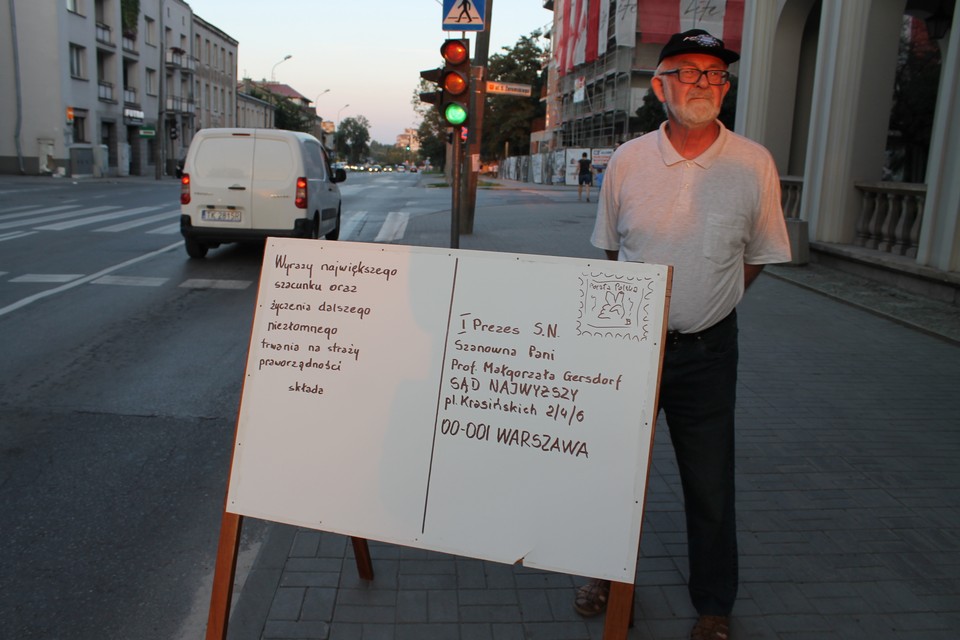 Wyrazy największego
szacunku oraz
życzenia dalszego
niezłomnego
trwania na straży
praworządności
składa
Poczta Polska
B
I Prezes S.N.
Szanowna Pani
Prof. Małgorzata Gersdorf
SĄD NAJWYŻSZY
pl. Krasińskich 2/4/6
00-001 WARSZAWA